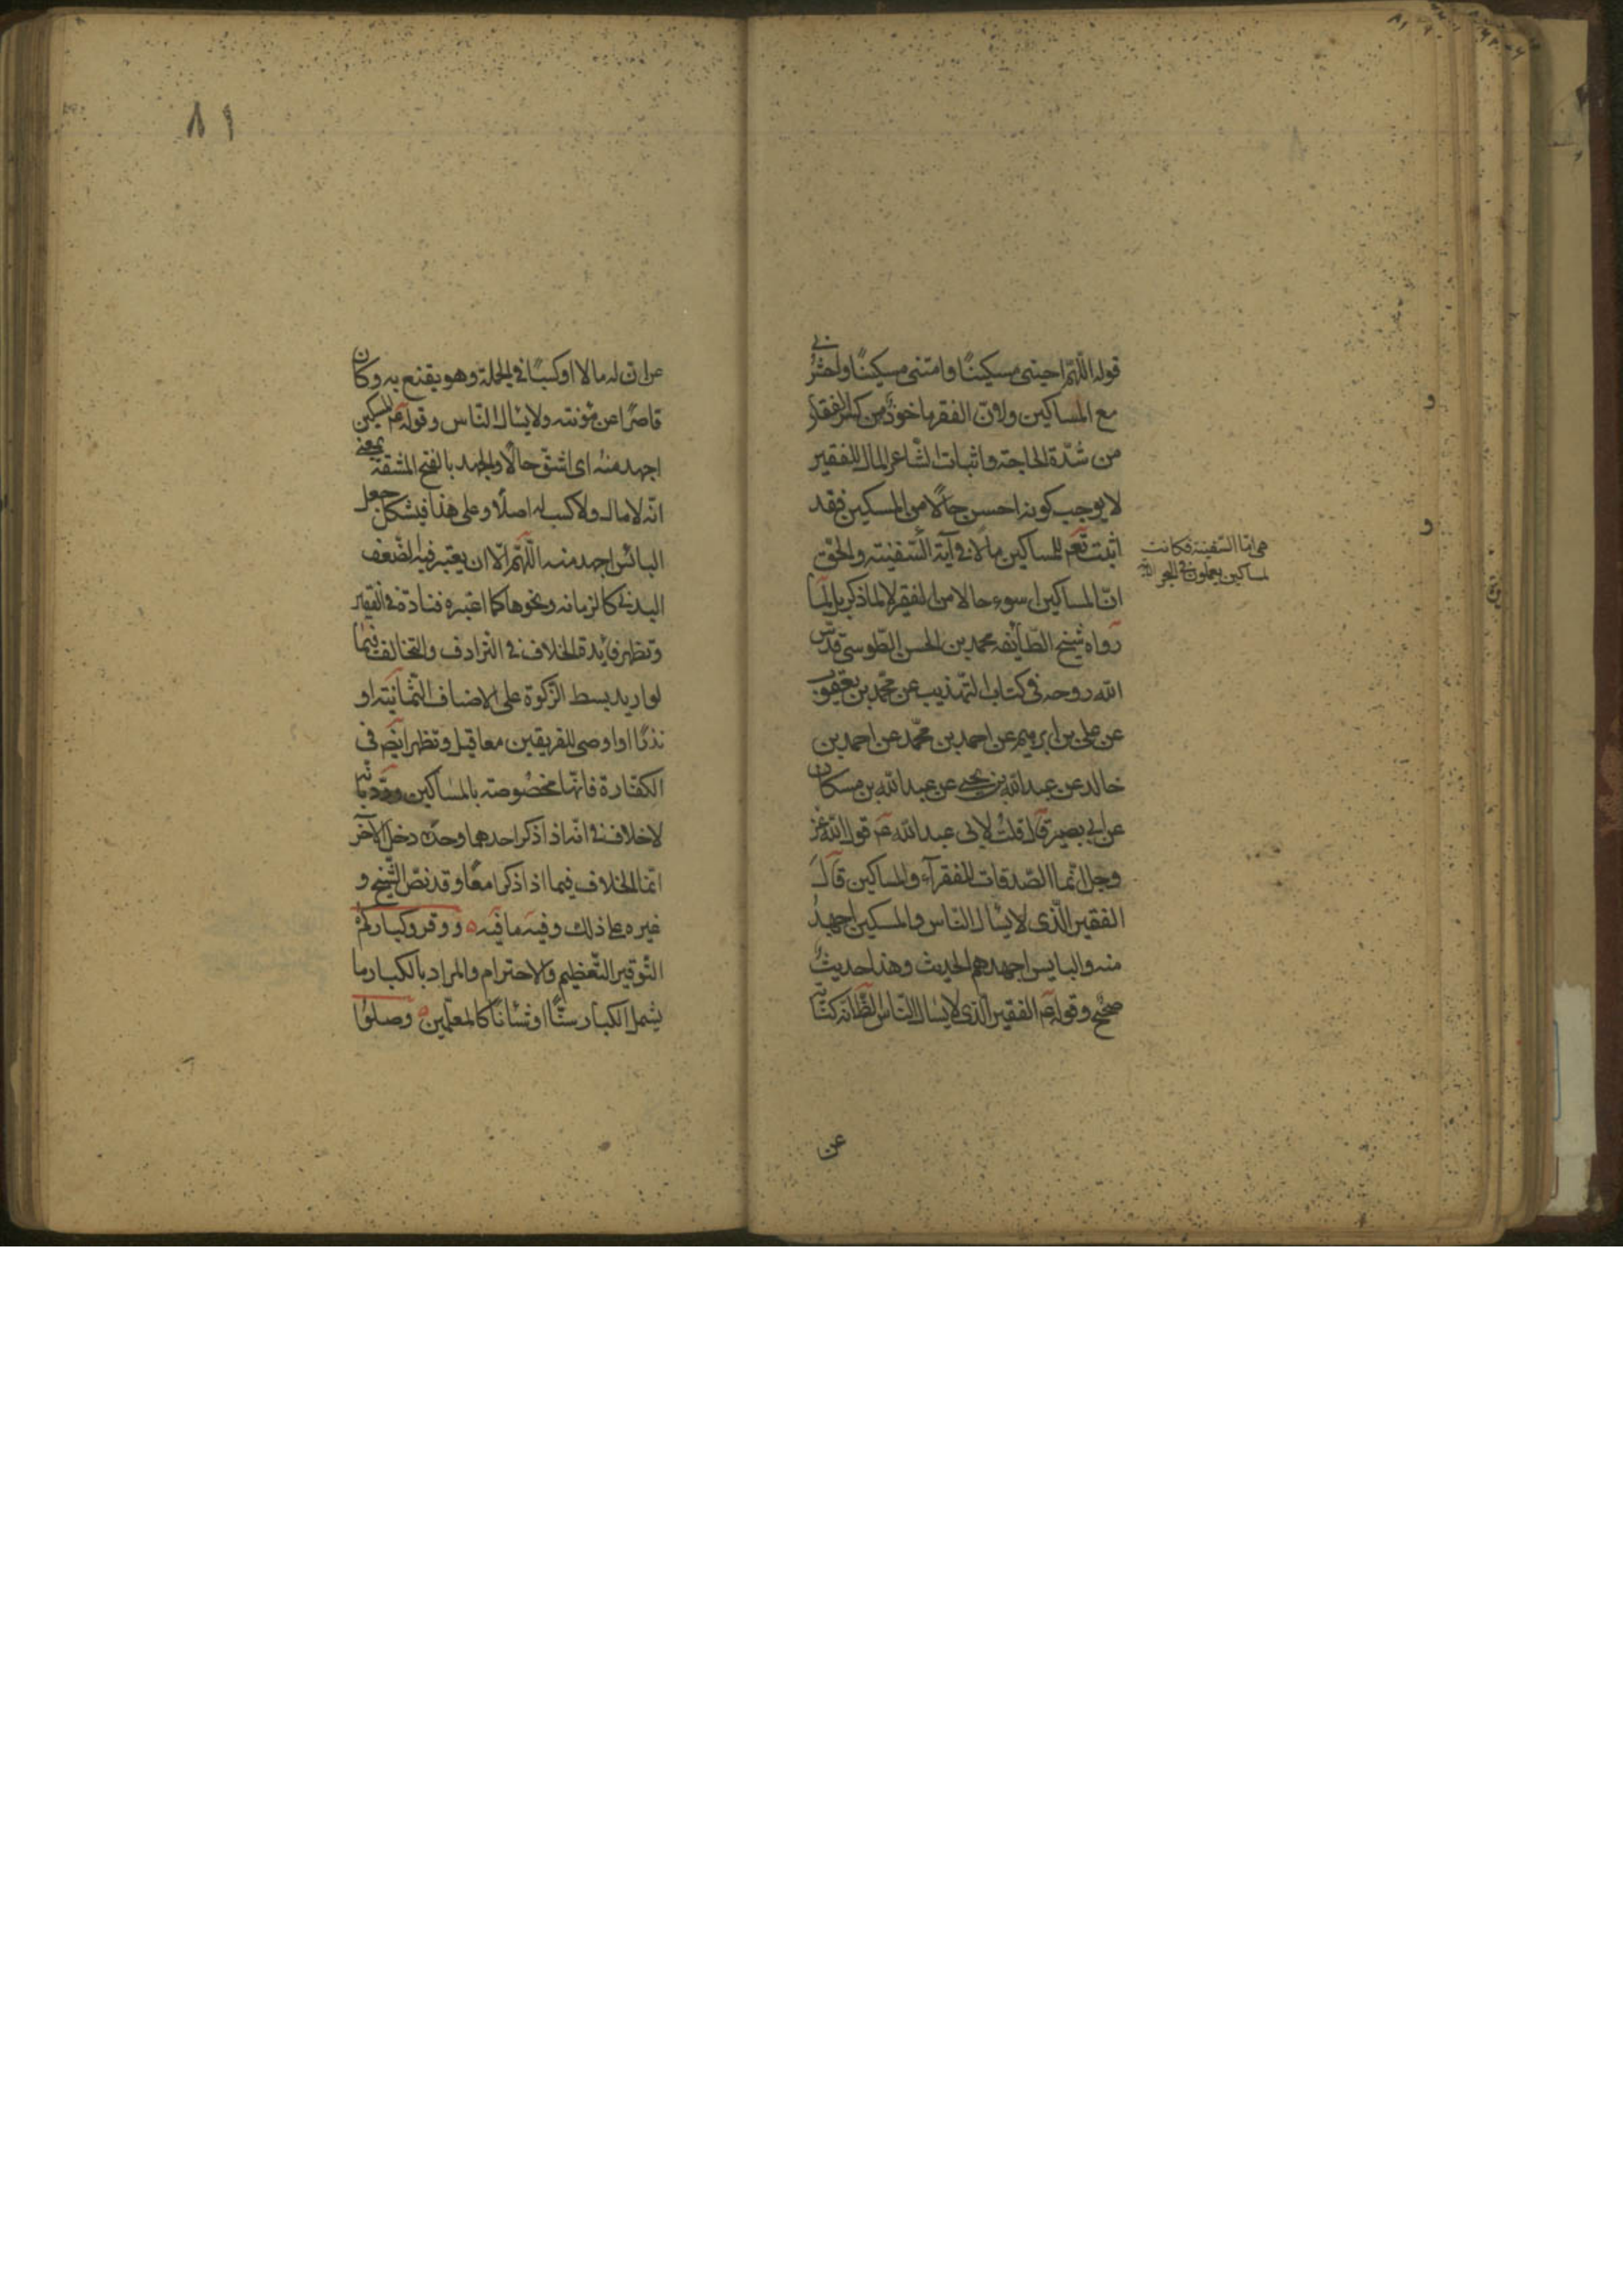 قوله اللّهمّ احينى مسكينًا وامتنى مسكينًا واحشرنى
مع المساكين ولانّ الفقر ماخوذ من كسر الفقار
من شدّة الحاجة واثبات الشاعر المال للفقير
لا يوجب كونه احسن حالًا من المسكين فقد
اثبت تعم للمساكين مالا فى آية السّفينة والحق
هى امّا السّفينة فكانت
لمساكين يعملون فى البحر
انّ المساكين اسوء حالا من الفقير لا لما ذكر بل لما
رواه شيخ الطّائفه محمد بن الحسن الطّوسى قدّس
الله روحه فى كتاب التهذيب عن محمّد بن يعقوب
عن على بن ابرهيم عن احمد بن محمّد عن احمد بن
خالد عن عبد الله بن يحيى عن عبد الله بن مسكان
عن ابى بصير قال قلت لابى عبد الله عم قول الله عز
وجل انّما الصّدقات للفقرآء والمساكين قال
الفقير الّذى لا يسئال النّاس والمسكين اجهد
منه والبايس اجهدهم الحديث وهذا حديث
صحيح وقوله عم الفقير الّذى لا يسئال النّاس لظ انّه كناية
عن
٨١
عن ان له مالا او كسبًا فى الجملة وهو يقنع به وكان
قاصرًا عن مؤنته ولا يسئال النّاس وقوله عم المسكين
اجهد منه اى اشقّ حالًا والجهد بالفتح المشقة بمعنى
انّه لا مال له ولا كسب له اصلًا وعلى هذا فيشكل جعل
البائس اجهد منه اللّهمّ الّا ان يعتبر فيه الضّعف
البدنى كالزمانه ونحوها كما اعتبره قتادة فى الفقير
وتظهر فايدة الخلاف فى الترادف والتخالف فيما
لو اريد بسط الزّكوة على الاصناف الثّمانية او
نذرًا او اوصى للفريقين معا قيل وتظهر ايضَ فى
الكفّارة فانّها مخصوصته بالمساكين وردّ بانّه
لا خلاف فى انّه اذا ذكر احدهما وحده دخل الآخر
انّما الخلاف فيما اذا ذكرا معًا وقد نصّ الشّيخ و
غيره على ذلك وفيه ما فيه ه ووقروا كباركم
التّوقير التّعظيم والاحترام والمراد بالكبار ما
يشمل الكبار سنًّا او شانًا كالمعلّمين ه وصلوا